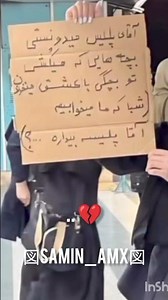 آقای پلیس میدونستی
بچه هایی که میکشی
تو بچگی با عشق میخوندن
(شبا که ما میخوابیم
آقا پلیسه بیداره ...؟)
..💔
SAMIN_AMX
InSh